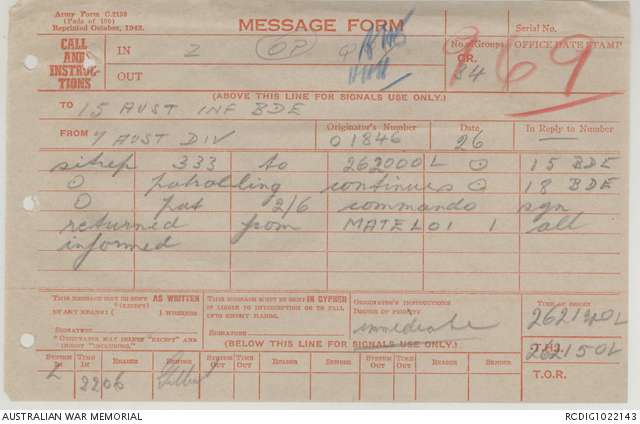 Army Form C.2128
(Pads of 100)
Reprinted October, 1942.
MESSAGE FORM
Serial No.
CALL
AND
INSTRUC-
TIONS
IN Z OP
OUT
No. of Groups
GR.
34
969
OFFICE DATE STAMP
(ABOVE THIS LINE FOR SIGNALS USE ONLY.)
TO 15 AUST INF BDE
FROM 7 AUST DIV
Originator's Number
O1846
Date
26
In Reply to Number
sitrep 333 to 262000L ⊙ 15 BDE
⊙ patrolling continues ⊙ 18 BDE
⊙ pat 2/6 commando sqn
returned from MATELOI 1 all
informed
THIS MESSAGE MAY BE SENT AS WRITTEN
BY ANY MEANS ( ) WIRELESS
SIGNATURE
"ORIGINATOR MAY DELETE "EXCEPT" AND
INSERT "INCLUDING."
THIS MESSAGE MUST BE SENT IN CYPHER
IF LIABLE TO INTERCEPTION OR TO FALL
INTO ENEMY HANDS.
SIGNATURE
ORIGINATOR'S INSTRUCTIONS
DEGREE OF PRIORITY
immediate
TIME OF ORIGIN
262140L
T.H.I.
262150L
T.O.R.
(BELOW THIS LINE FOR SIGNALS USE ONLY.)
SYSTEM IN TIME IN READER SENDER SYSTEM OUT TIME OUT READER SENDER SYSTEM OUT TIME OUT READER SENDER
L 2206
AUSTRALIAN WAR MEMORIAL
RCDIG1022143